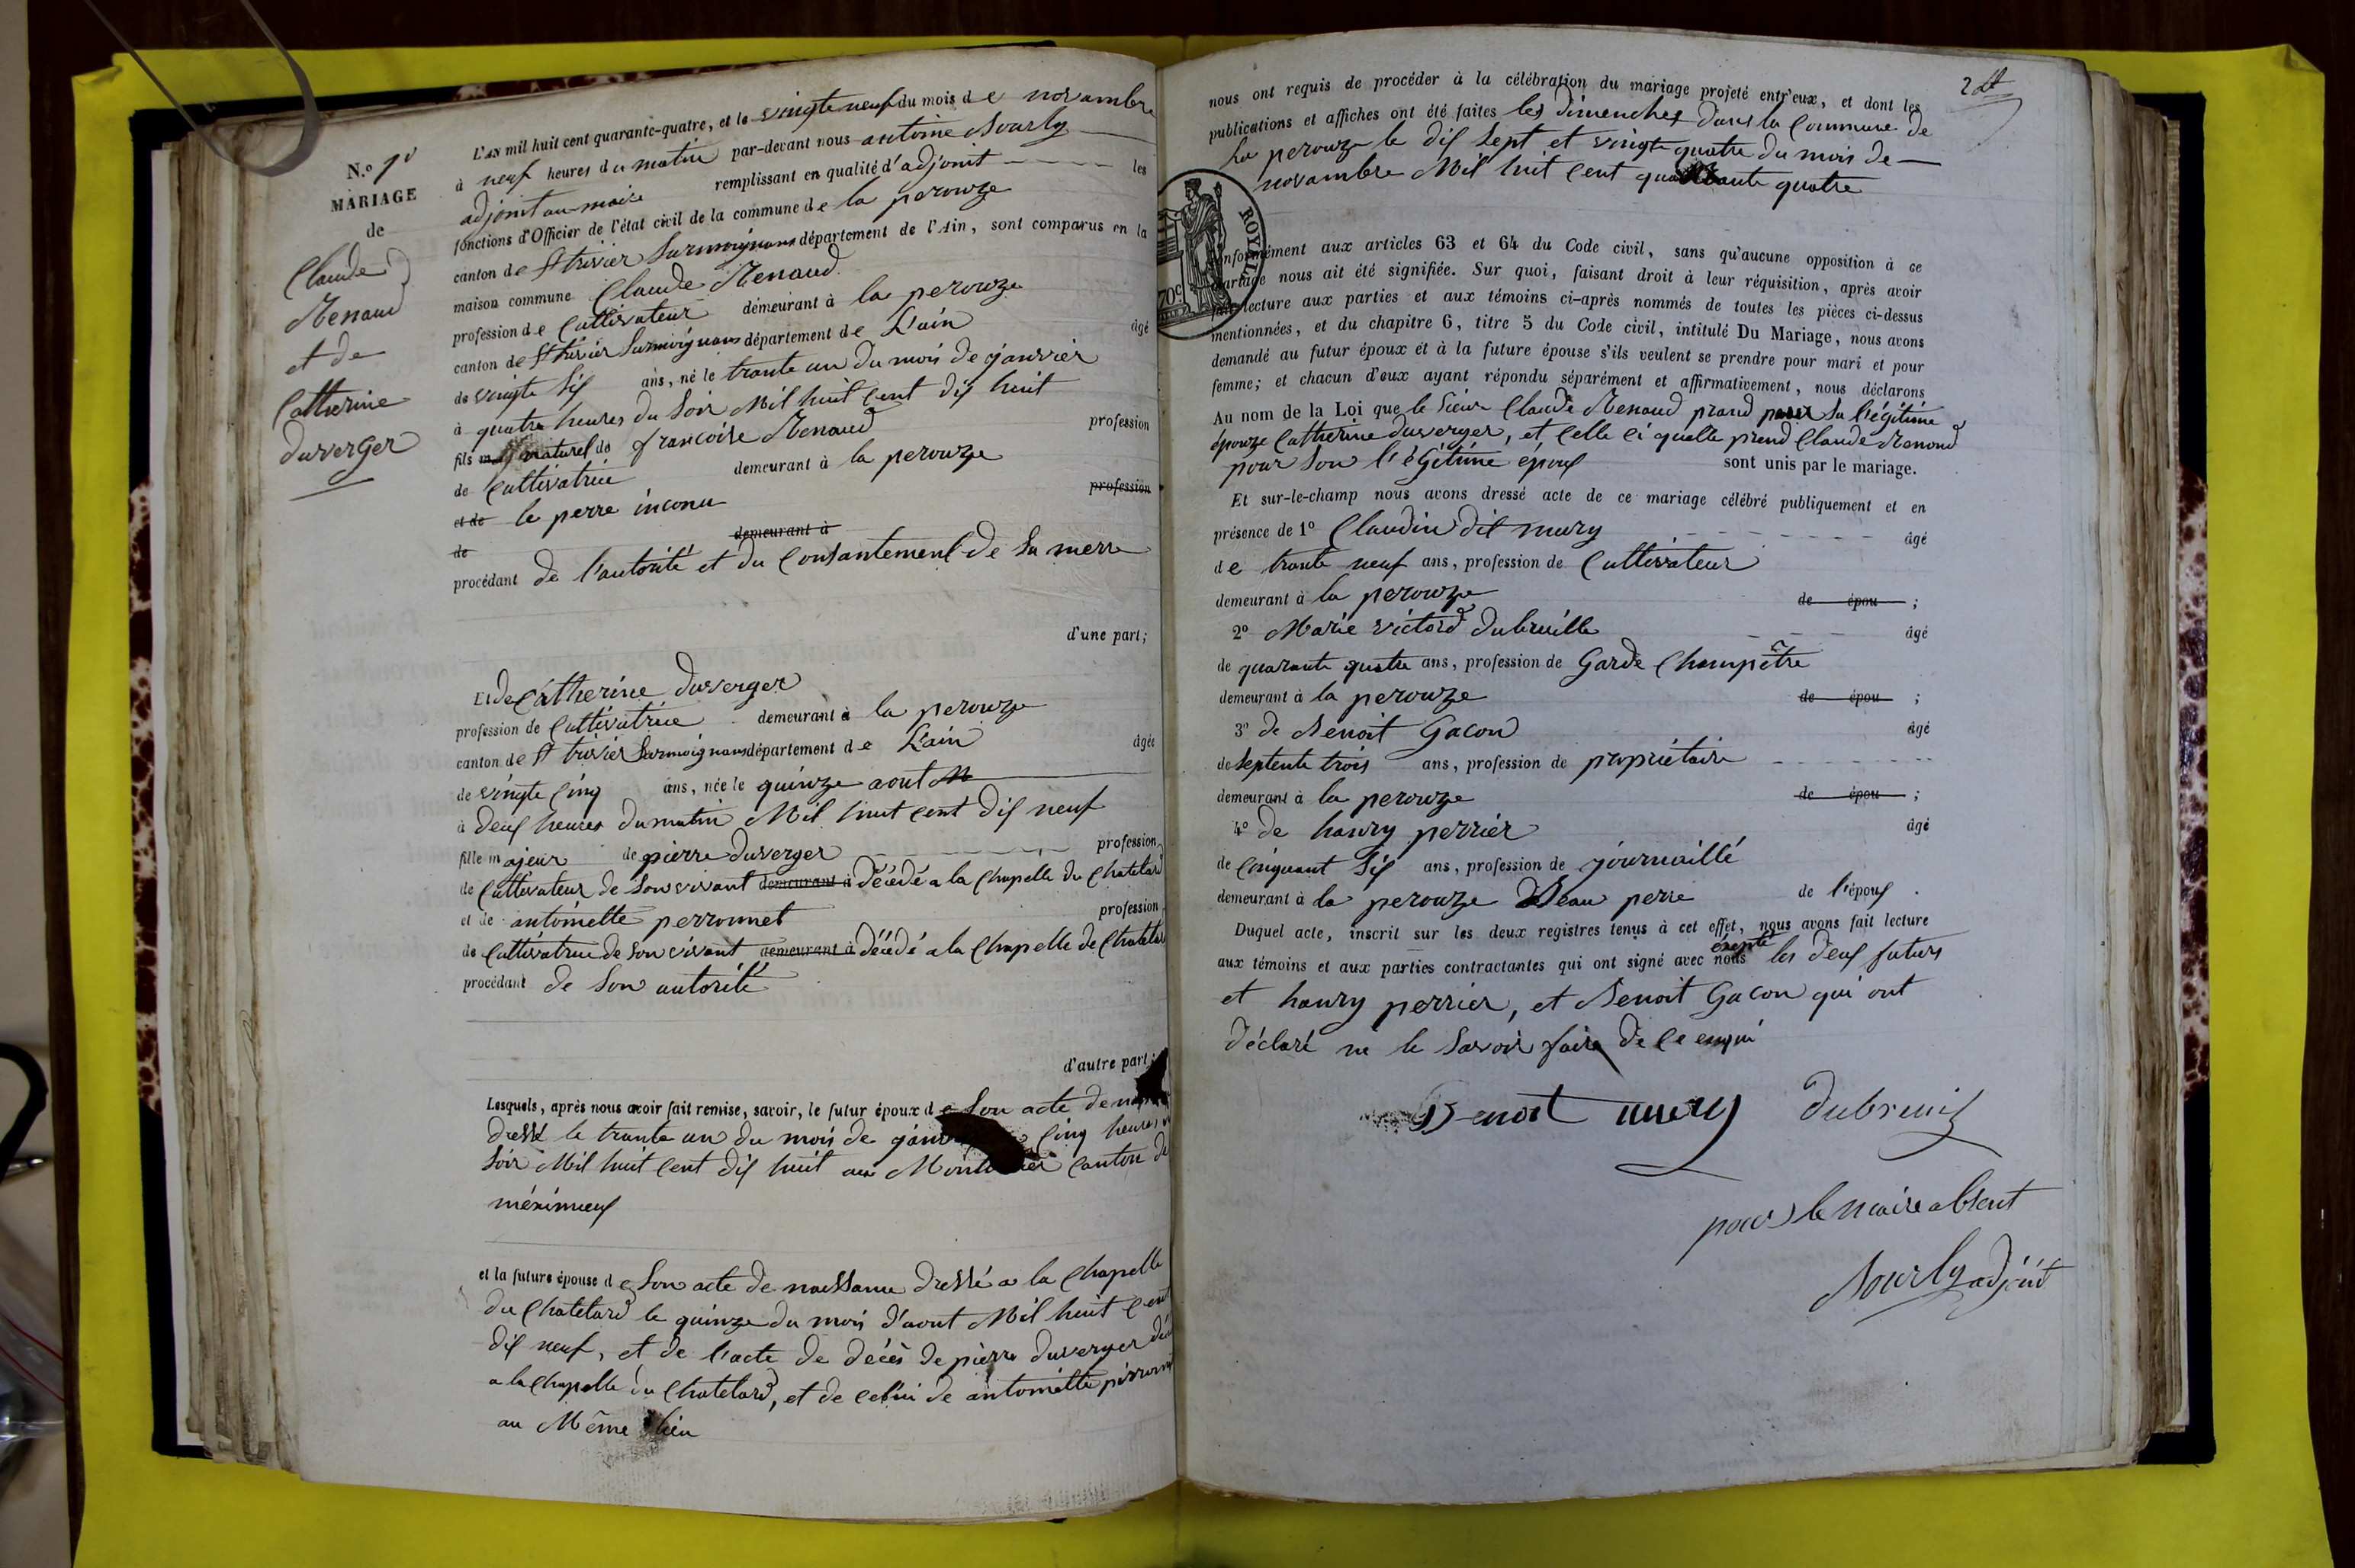 N.o
MARIAGE
de
Claude
Renaud
et de
Catherine
duverger
L'AN mil huit cent quarante-quatre, et le vingte neuf du mois de novambre
à neuf heures du matin par-devant nous antoine
adjoint au maire remplissant en qualité d'adjonit les
fonctions d'Officier de l'état civil de la commune de la perouze
canton de St trivier Surmoignans département de l'Ain, sont comparus en la
maison commune Claude Renaud
profession de Cultivateur demeurant à la perouze
canton de St trivier Surmoignans département de L'ain âgé
de vingte Six ans, né le trante un du mois de janvier
à quatre heures du Soir Mil huit Cent dix huit
fils naturel de francoise Renaud profession
de Cultivatrice demeurant à la perouze
et de le perre inconu profession
de demeurant à
procédant de l'autorité et du Consantement de Sa merre
d'une part;
Et de Catherine duverger
profession de Cultivatrice demeurant à la perouze
canton de St trivier Surmoignans département de L'ain âgée
de vingte Cinq ans, née le quinze aout
à deux heures du matin Mil huit cent dix neuf
fille majeur de pierre duverger profession
de Cultivateur de Son vivant demeurant à décédé a la Chapelle du Chatelard
et de antoinette perronnet profession
de Cultivatrice de Son vivant demeurant à décédé a la Chapelle de Chatelar
procédant de Son autorité
d'autre part;
Lesquels, après nous avoir fait remise, savoir, le futur époux de Son acte de
dressé le trante un du mois de Cinq heures
Soir Mil huit Cent dix huit au canton de
méximieux
et la future épouse de Son acte de naissance dréssé a la Chapelle
du Chatelard le quinze du mois d'aout Mil huit Cent
dix neuf, et de l'acte de décès de pierre duverger
a la Chapelle du Chatelard, et de celui de antoinette
au Même lieu
nous ont requis de procéder à la célébration du mariage projeté entr'eux, et dont les
publications et affiches ont été faites les dimenches dans la Commune de
La perouze le dix Sept et vingte quatre du mois de
novambre Mil huit Cent quarante quatre
ROYAL
70c
conformément aux articles 63 et 64 du Code civil, sans qu'aucune opposition à ce
mariage nous ait été signifiée. Sur quoi, faisant droit à leur réquisition, après avoir
fait lecture aux parties et aux témoins ci-après nommés de toutes les pièces ci-dessus
mentionnées, et du chapitre 6, titre 5 du Code civil, intitulé Du Mariage, nous avons
demandé au futur époux et à la future épouse s'ils veulent se prendre pour mari et pour
femme; et chacun d'eux ayant répondu séparément et affirmativement, nous déclarons
Au nom de la Loi que le Sieur Claude Renaud prand pour Sa l'égitime
épouze Catherine duverger, et Celle Ci quelle prend Claude Renaud
pour Son l'égitime époux sont unis par le mariage.
Et sur-le-champ nous avons dressé acte de ce mariage célébré publiquement et en
présence de 1º Claudin dit mury âgé
de trante neuf ans, profession de Cultivateur
demeurant à la perouze de épou ;
2º Marie victord dubreuille âgé
de quarante quatre ans, profession de Garde Champêtre
demeurant à la perouze de épou ;
3º de Benoit Gacon âgé
de Septente trois ans, profession de propriétaire
demeurant à la perouze de épou ;
4º de hanry perrier âgé
de Cinquant Six ans, profession de journaillé
demeurant à la perouze Beau perre de l'époux
Duquel acte, inscrit sur les deux registres tenus à cet effet, nous avons fait lecture
aux témoins et aux parties contractantes qui ont signé avec nous éxepté les deux futurs
et hanry perrier, et Benoit Gacon qui ont
déclaré ne le Savoir faire de Ce enquis
Benoit mury dubreuil
pour le maire absent
adjoint